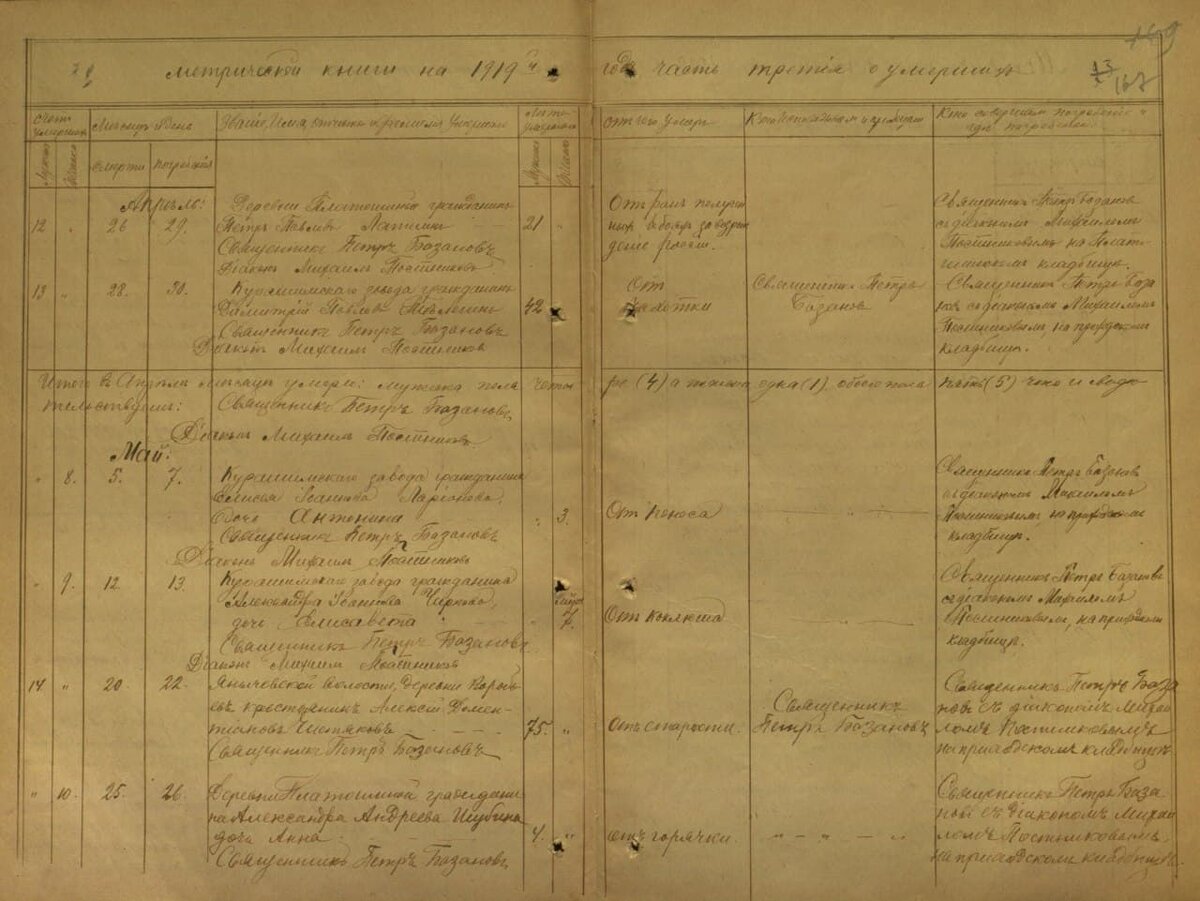 метрической книги на 1919 й
годъ часть третія о умершихъ
169
167
Счетъ умершихъ
Мѣсяцъ и день
Званіе, имя, отчество и фамилія умершаго
Лѣта умершаго
отъ чего умеръ
Кто совершалъ погребеніе и гдѣ погребены
Мужска
Женска
смерти
погребенія
Мужска
Женска
Апрѣль:
Деревни Платошиной гражданинъ
12 " 26 29. Петръ Павловъ 21 "
Священникъ Петръ Базановъ
Діаконъ Михаилъ Постниковъ
Отъ ранъ получен
ныхъ
Священникъ Петръ Базановъ
съ діакономъ Михаиломъ
Постниковымъ на Плато
шинскомъ кладбищѣ.
13 " 28. 30. Курашимскаго завода гражданинъ
Димитрій Павловъ 42 "
Священникъ Петръ Базановъ
Діаконъ Михаилъ Постниковъ
От
чахотки
Священникъ Петръ
Базановъ
Священникъ Петръ База
новъ съ діакономъ Михаиломъ
Постниковымъ, на приходском
кладбищѣ.
Итого въ Апрѣлѣ мѣсяцѣ умерло: мужска пола четы
ре (4) а женска одна (1), обоего пола пять (5) чего и свидѣ
тельствуем:
Священникъ Петръ Базановъ
Діаконъ Михаилъ Постниковъ.
Май:
" 8. 5. 7. Курашимскаго завода гражданина
Елисея Іоаннова Ларіонова
дочь Антонина " 3.
Священникъ Петръ Базановъ
Діаконъ Михаилъ Постниковъ
От поноса
Священникъ Петръ Базановъ
съ діакономъ Михаиломъ
Постниковымъ, на приходском
кладбищѣ.
" 9. 12. 13. Курашимскаго завода гражданина
Александра Іоаннова Чиркова,
дочь Елисавета 7.
Священникъ Петръ Базановъ
Діаконъ Михаилъ Постниковъ
От коклюша
Священникъ Петръ Базановъ
съ діакономъ Михаиломъ
Постниковымъ, на приходском
кладбищѣ.
14 " 20. 22. Янычевской волости, деревни Короб
евъ крестьянинъ Алексій Домен-
тіановъ Шестяковъ 75. "
Священникъ Петръ Базановъ
Отъ старости.
Священникъ
Петръ Базановъ
Священникъ Петръ База
новъ съ діакономъ Михаи
ломъ Постниковымъ
на приходскомъ кладбищѣ
" 10. 25. 26. Деревни Платошиной граждани
на Александра Андреева Шубина
дочь Анна 4. "
Священникъ Петръ Базановъ
отъ горячки.
Священникъ Петръ База
новъ съ діакономъ Михаи
ломъ Постниковымъ
на приходскомъ кладбищѣ.